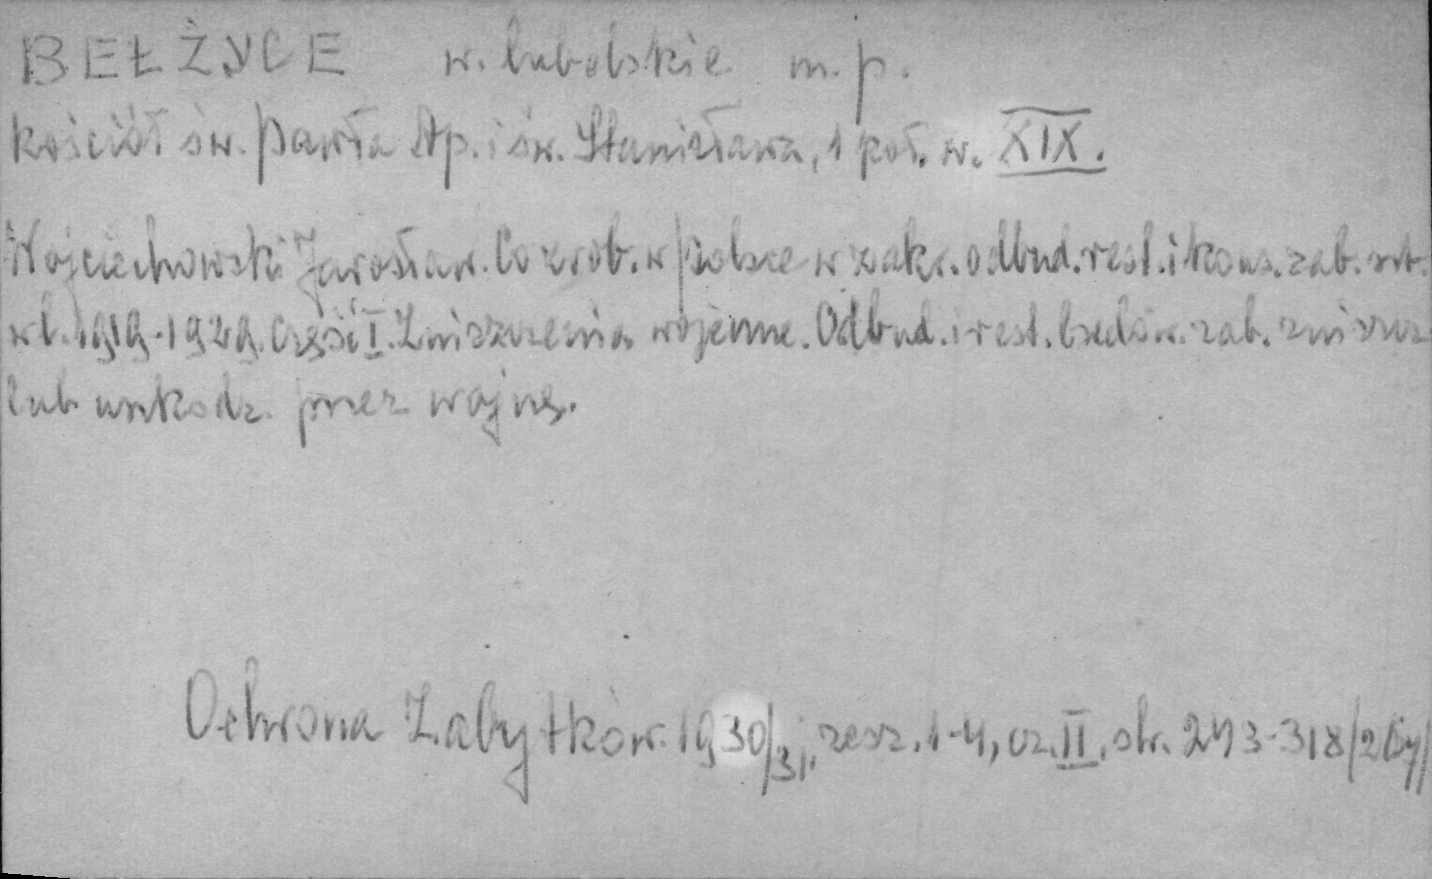 BEŁŻYCE w. lubelskie m. p.
kościół św. Pawła Ap. i św. Stanisława, 1 poł. w. XIX.
Wojciechowski Jarosław. Co zrob. w Polsce w zakr. odbud. rest. i kons. zab. szt.
w l. 1919-1929. Część I. Zniszczenia wojenne. Odbud. i rest. budow. zab. zniszcz
lub uszkodz. przez wojnę.
Ochrona Zabytków. 1930/31, zesz. 1-4, cz. II. str. 243-318